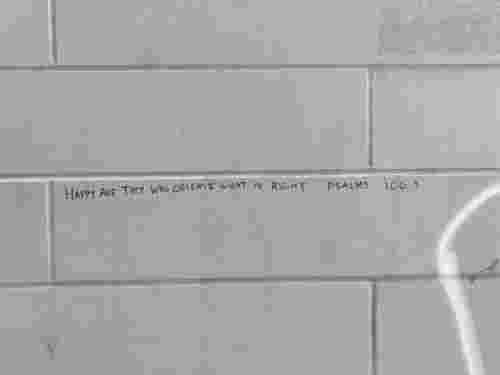 HAPPY ARE THEY WHO OBSERVE WHAT IS RIGHT PSALMS 106:3